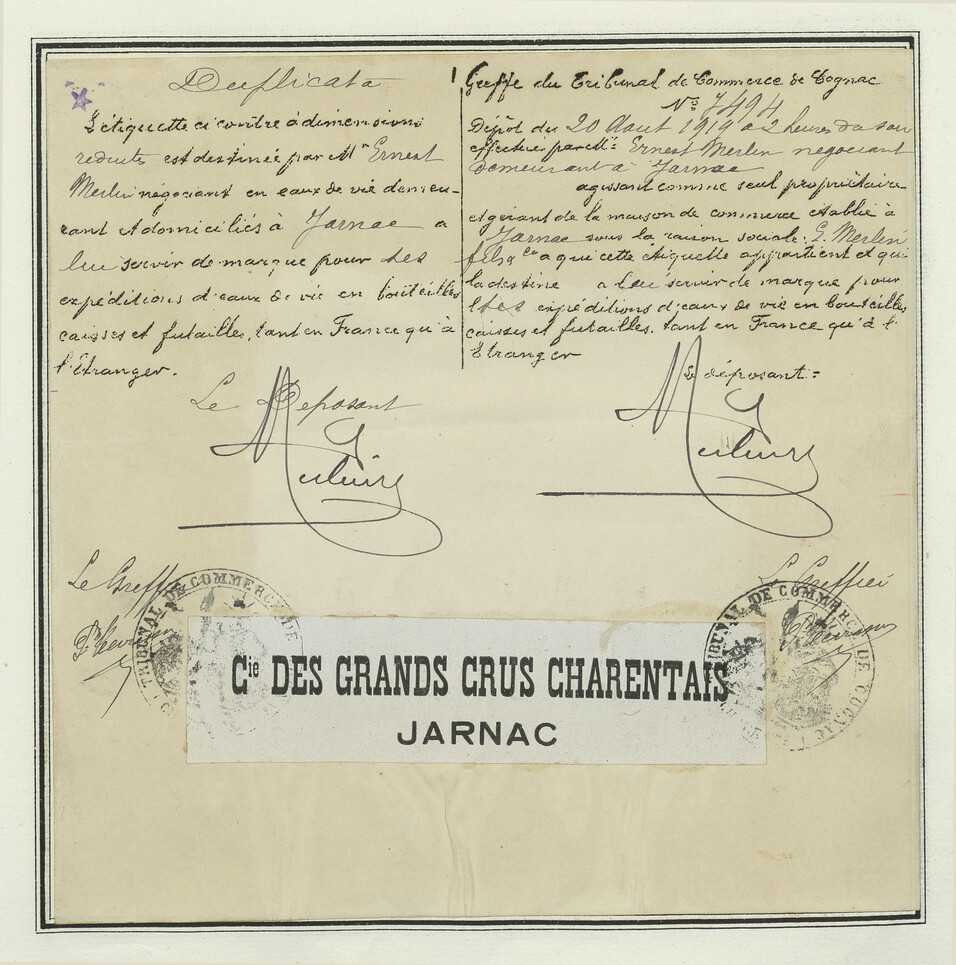 Duplicata
L'étiquette ci contre à dimensions
reduites est destinée par Mr Ernest
Merlin négociant en eaux de vie demeu-
rant et domiciliés à Jarnac a
lui servir de marque pour ses
expéditions d'eaux de vie en bouteilles
caisses et futailles, tant en France qu'à
l'Etranger.
Le Deposant
Merlin
Le Greffier
Greffe du Tribunal de Commerce de Cognac
No. 7494
Dépôt du 20 Aout 1919 a 2 heures du soir
effectué par Mr. Ernest Merlin negociant
demeurant à Jarnac
agissant comme seul propriétaire
et gérant de la maison de commerce établie à
Jarnac sous la raison sociale: E. Merlin
fils & Cie a qui cette étiquette appartient et qui
la destine a lui servir de marque pour
ses expéditions d'eaux de vie en bouteilles
caisses et futailles. tant en France qu'à l'
Etranger
Le déposant =
Merlin
Le Greffier
TRIBUNAL DE COMMERCE DE
TRIBUNAL DE COMMERCE DE COGNAC
Cie DES GRANDS CRUS CHARENTAIS
JARNAC